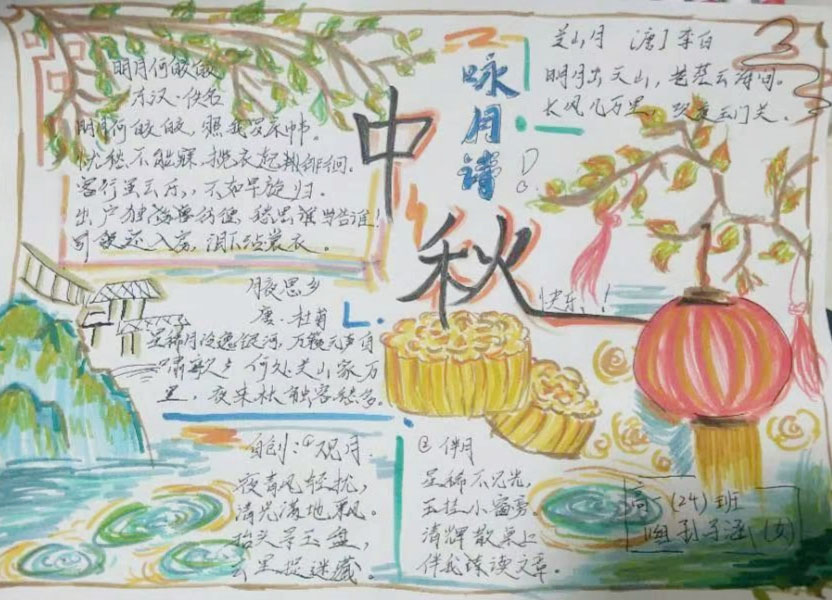 明月何皎皎
东汉·佚名
明月何皎皎，照我罗床帏。
忧愁不能寐，揽衣起徘徊。
客行虽云乐，不如早旋归。
出户独彷徨，愁思谁当告谁！
引领还入房，泪下沾裳衣。
中
秋
快乐！
咏月诗
关山月 [唐] 李白
明月出天山，苍茫云海间。
长风几万里，吹度玉门关。
月夜思乡
唐·杜甫
星稀月冷逸银河，万籁无声自
啸歌。何处关山家万
里，夜来秋触客愁多。
自创：①观月
夜 风轻扰，
清光满地 。
抬头寻玉盘，
云里捉迷藏。
② 伴月
星稀不见光，
玉挂小窗旁。
清辉散桌上
伴我读文章。
高一(24)班
(女)